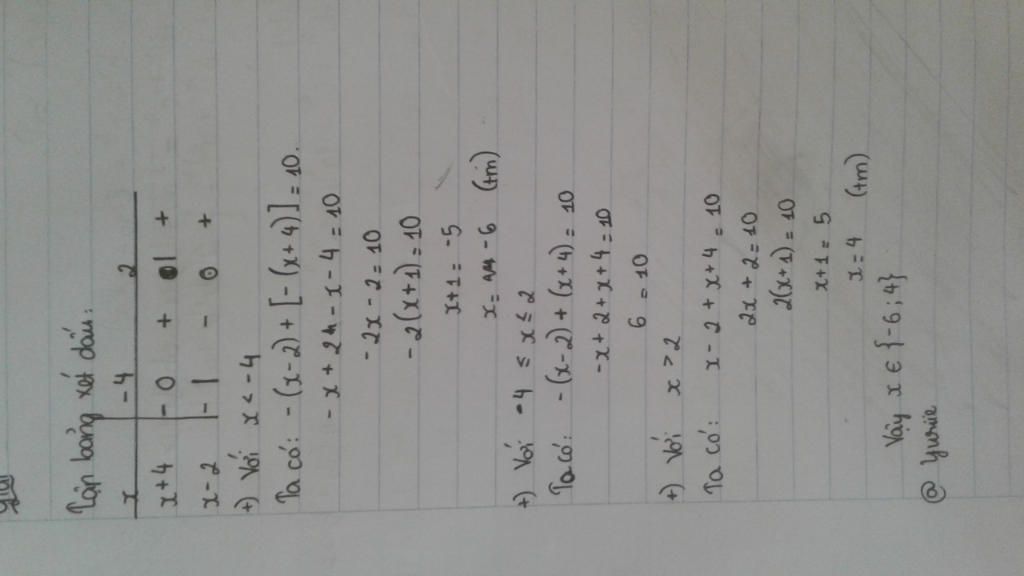 Giải
Lập bảng xét dấu:
x -4 2
x+4 - 0 + | +
x-2 - | - 0 +
+) Với x < -4
Ta có: -(x-2)+[-(x+4)]=10.
-x+2-x-4=10
-2x-2=10
-2(x+1)=10
x+1=-5
x= -6 (tm)
+) Với -4 ≤ x ≤ 2
Ta có: -(x-2)+(x+4)=10
-x+2+x+4=10
6=10
+) Với x > 2
Ta có: x-2+x+4=10
2x+2=10
2(x+1)=10
x+1=5
x=4 (tm)
Vậy x ∈ {-6;4}
@ Yuriie